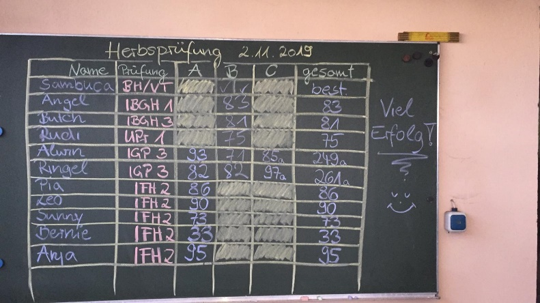 Herbsprüfung 2.11.2019
Name Prüfung A B C gesamt
Sambuca BH/VT best
Angel IBGH 1 83 83
Butch IBGH 3 81 81
Rudi UPr 1 75 75
Alwin IGP 3 93 71 85a 249a
Ringel IGP 3 82 82 97a 261a
Pia IFH 2 86 86
Leo IFH 2 90 90
Sunny IFH 2 73 73
Bernie IFH 2 33 33
Anja IFH 2 95 95
Viel
Erfolg!